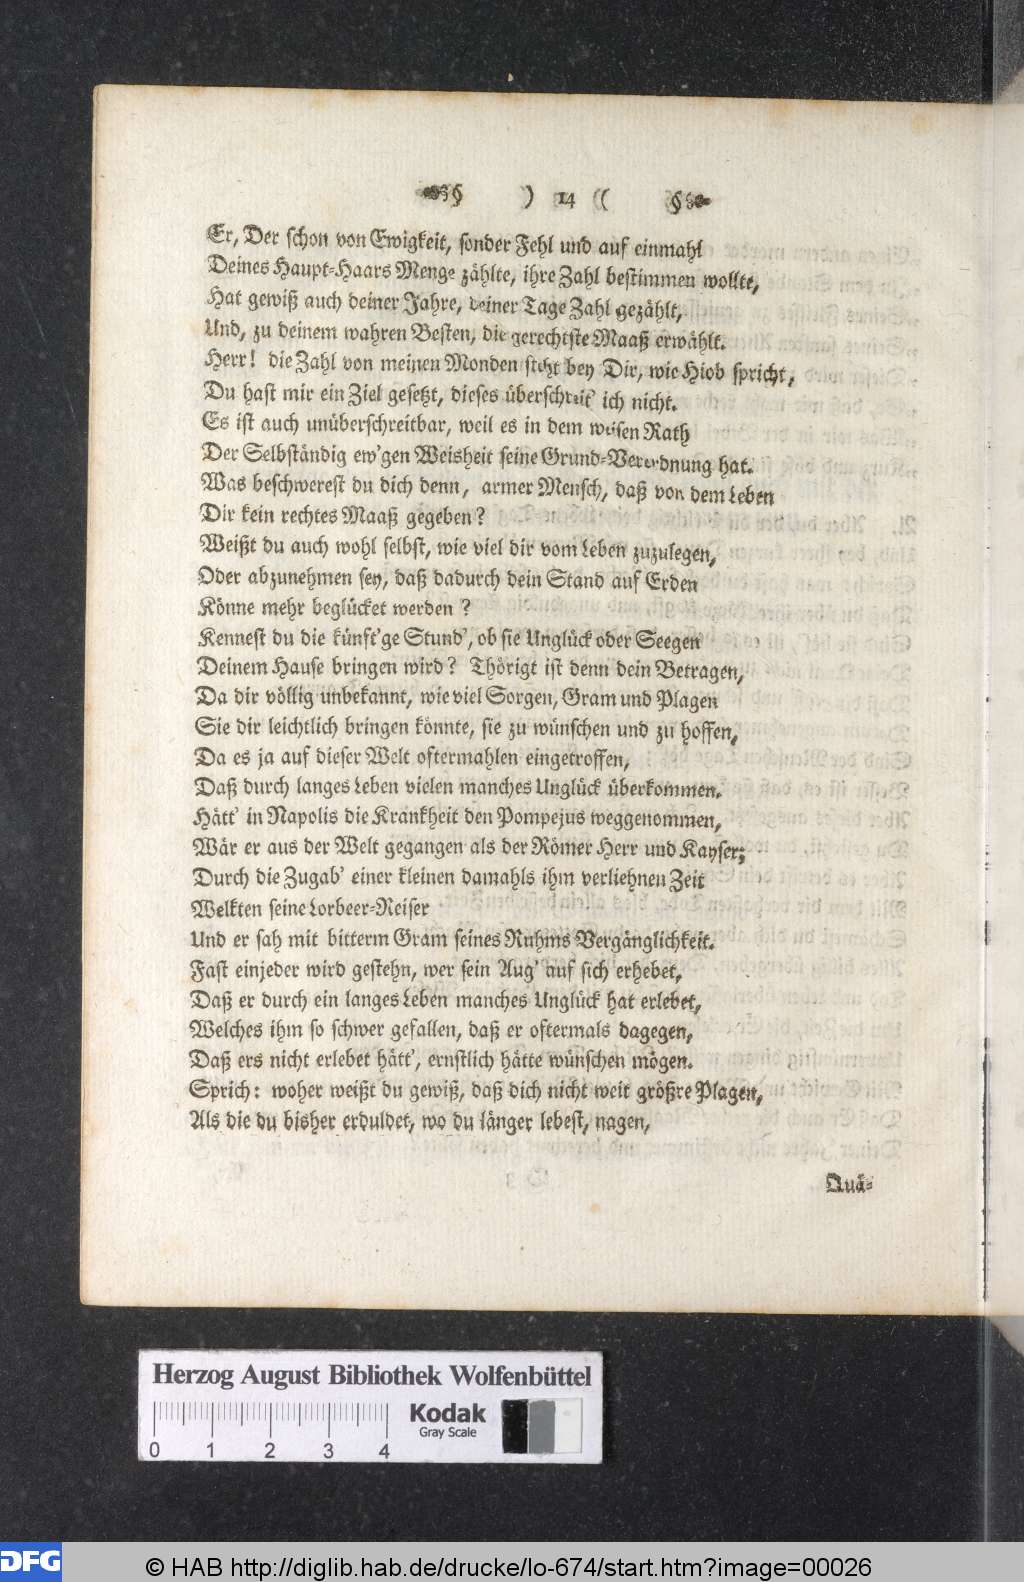 § ) 14 ( §
Er, Der schon von Ewigkeit, sonder Fehl und auf einmahl
Deines Haupt-Haars Menge zählte, ihre Zahl bestimmen wollte,
Hat gewiß auch deiner Jahre, deiner Tage Zahl gezählt,
Und, zu deinem wahren Besten, die gerechtste Maaß erwählt.
Herr! die Zahl von meinen Monden steht bey Dir, wie Hiob spricht,
Du hast mir ein Ziel gesetzt, dieses überschreit' ich nicht.
Es ist auch unüberschreitbar, weil es in dem weisen Rath
Der Selbständig ew'gen Weisheit seine Grund-Verordnung hat.
Was beschwerest du dich denn, armer Mensch, daß von dem Leben
Dir kein rechtes Maaß gegeben?
Weißt du auch wohl selbst, wie viel dir vom Leben zuzulegen,
Oder abzunehmen sey, daß dadurch dein Stand auf Erden
Könne mehr beglücket werden?
Kennest du die künft'ge Stund', ob sie Unglück oder Seegen
Deinem Hause bringen wird? Thörigt ist denn dein Betragen,
Da dir völlig unbekannt, wie viel Sorgen, Gram und Plagen
Sie dir leichtlich bringen könnte, sie zu wünschen und zu hoffen,
Da es ja auf dieser Welt oftermahlen eingetroffen,
Daß durch langes Leben vielen manches Unglück überkommen.
Hätt' in Napolis die Krankheit den Pompejus weggenommen,
Wär er aus der Welt gegangen als der Römer Herr und Kayser;
Durch die Zugab' einer kleinen damahls ihm verliehnen Zeit
Welkten seine Lorbeer-Reiser
Und er sah mit bitterm Gram seines Ruhms Vergänglichkeit.
Fast einjeder wird gestehn, wer sein Aug' auf sich erhebet,
Daß er durch ein langes Leben manches Unglück hat erlebet,
Welches ihm so schwer gefallen, daß er oftermals dagegen,
Daß ers nicht erlebet hätt', ernstlich hätte wünschen mögen.
Sprich: woher weißt du gewiß, daß dich nicht weit größre Plagen,
Als die du bisher erduldet, wo du länger lebest, nagen,
Quä-
Herzog August Bibliothek Wolfenbüttel
Kodak
Gray Scale
0 1 2 3 4
DFG
© HAB http://diglib.hab.de/drucke/lo-674/start.htm?image=00026